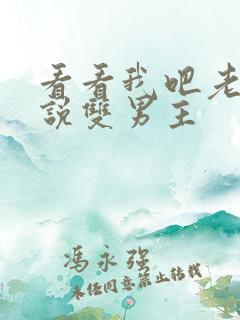 看看我吧老
說雙男主
馮永強
未经同意禁止转载